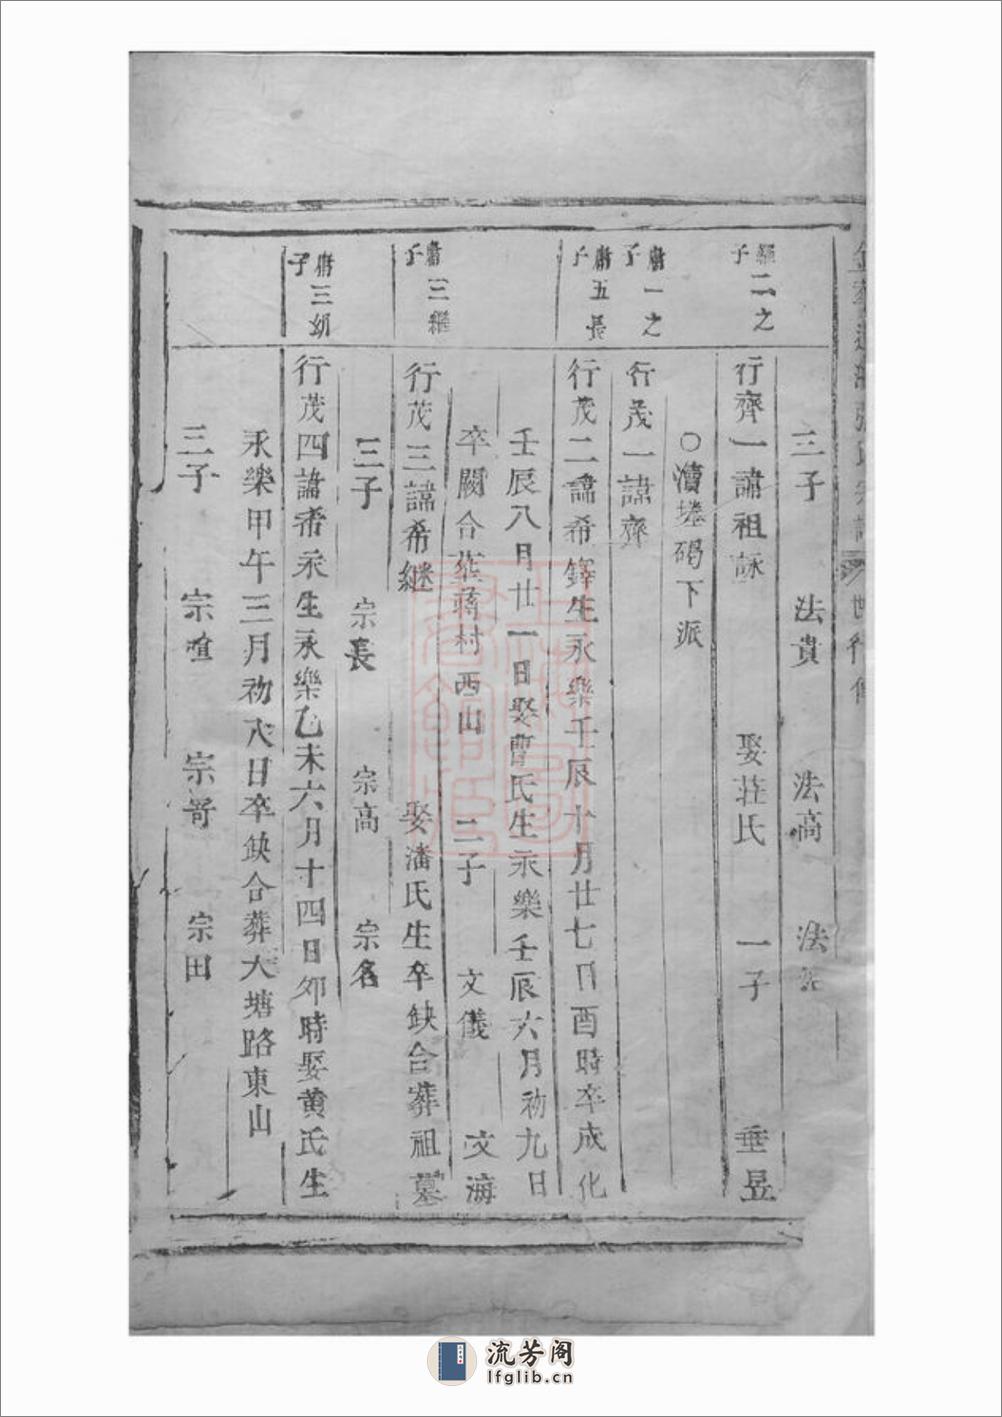 三子 法貴 法高 法
二之子
行齊一諱祖詠 娶莊氏 一子 垂昱
○瀆塘碣下派
庸一之子
行茂一諱齊
庸五長子
行茂二諱希鐸生永樂壬辰十月廿七日酉時卒成化
壬辰八月廿一日娶曹氏生永樂壬辰六月初九日
卒闕合葬蔣村西山 二子 文儀 文海
庸三繼子
行茂三諱希繼 娶潘氏生卒缺合葬祖墓
三子 宗長 宗高 宗名
庸三幼子
行茂四諱希永生永樂乙未六月十四日夘時娶黄氏生
永樂甲午三月初八日卒缺合葬大塘路東山
三子 宗 宗哿 宗田
流芳阁
lfglib.cn